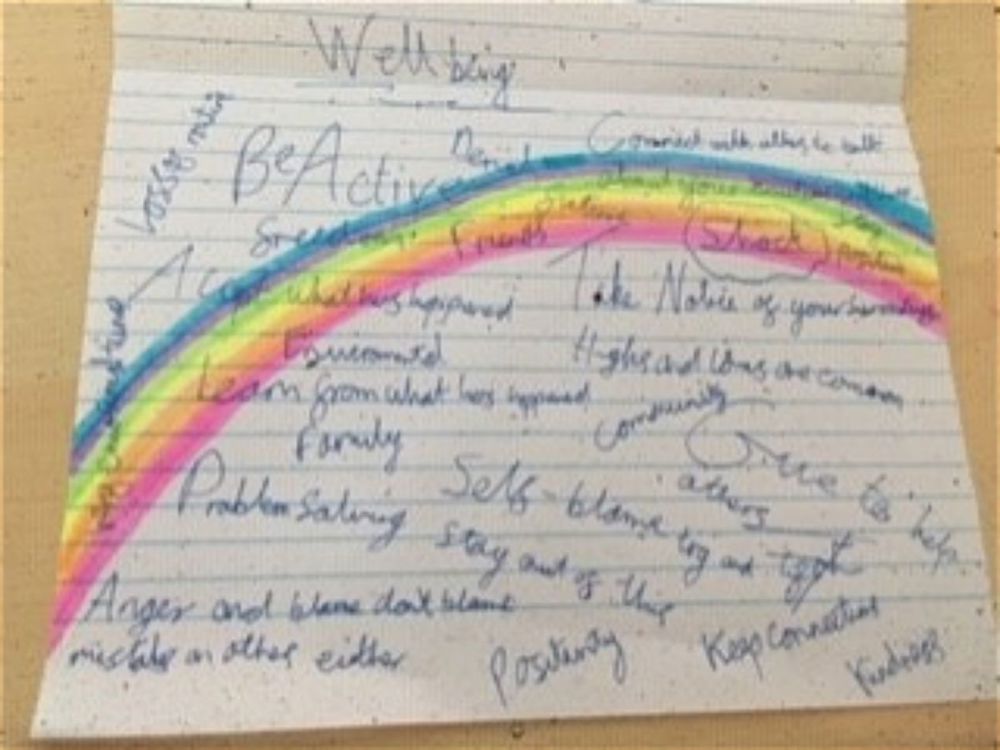 Well being
Be Active
Denial
Connect with others to talk
about your
Friends
Shock
positive
Accept what has happened
Take Notice of your
Learn from what has happened
Highs and lows are common
Family
community
Give to help
others
Problem Solving
Self-blame try and
stay out of this
Anger and blame dont blame
mistake on other either
Positivity
Keep connection
Kindness